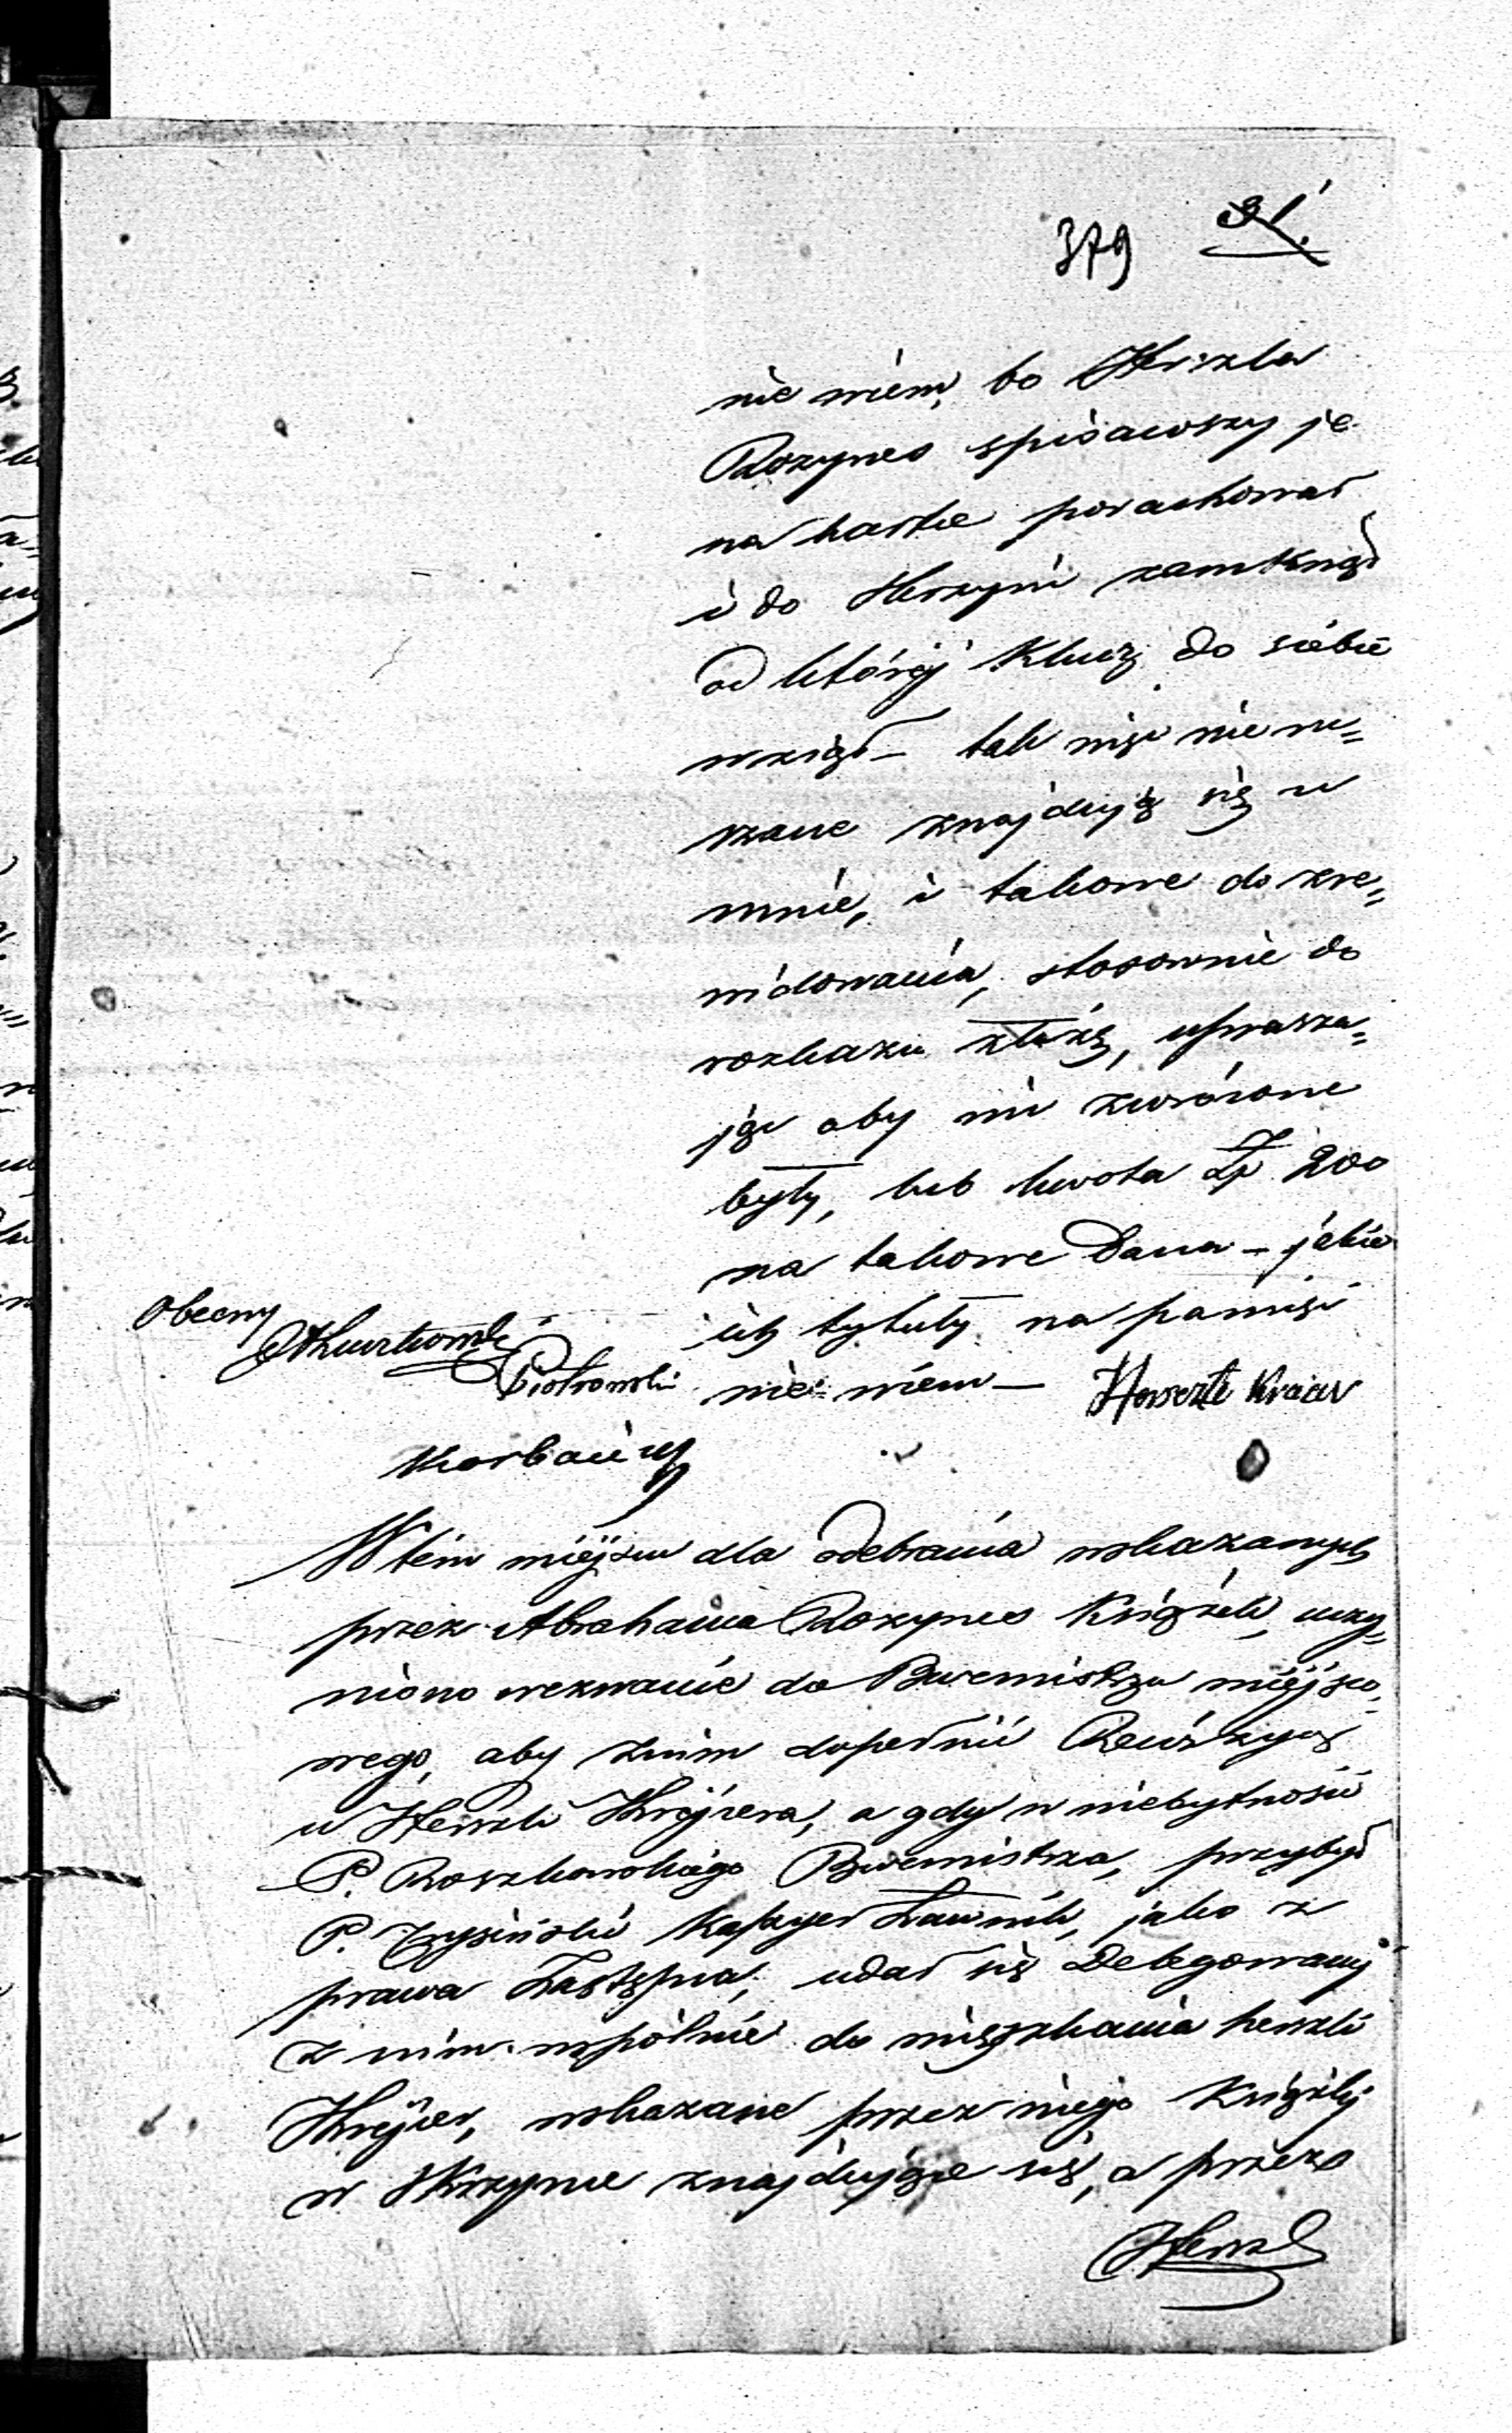 379 31.
nie wiem, bo Herszla
Rozynes spisawszy je
na kartce porachował
i do skrzyni zamknął
od której klucz do siebie
wziął – tak więc nieru=
szane znajdują się u
mnie, i takowe do zre=
widowania, stosownie do
rozkazu złożę, uprasza=
jąc aby mi zwrócone
były, lub kwota Zp 200
na takowe dana – jakie
ich tytuły na pamięć
nie wiem –
Obecny
Piotrowski
W tém miejscu dla odebrania wskazanych
przez Abrahama Rozynes Książek, uczy=
niono wezwanie do Burmistrza miejsco=
wego, aby z nim dopełnić Rewizyą
u Herszli Krejcera, a gdy w niebytności
P. Roszkowskiego Burmistrza, przybył
P. Kasper Ławnik, jako z
prawa Zastępca, udał się Delegowany
z nim wspólnie do mieszkania herszli
Krejcer, wskazane przez niego Książki
w Skrzynce znajdujące się, a przez
Herszl